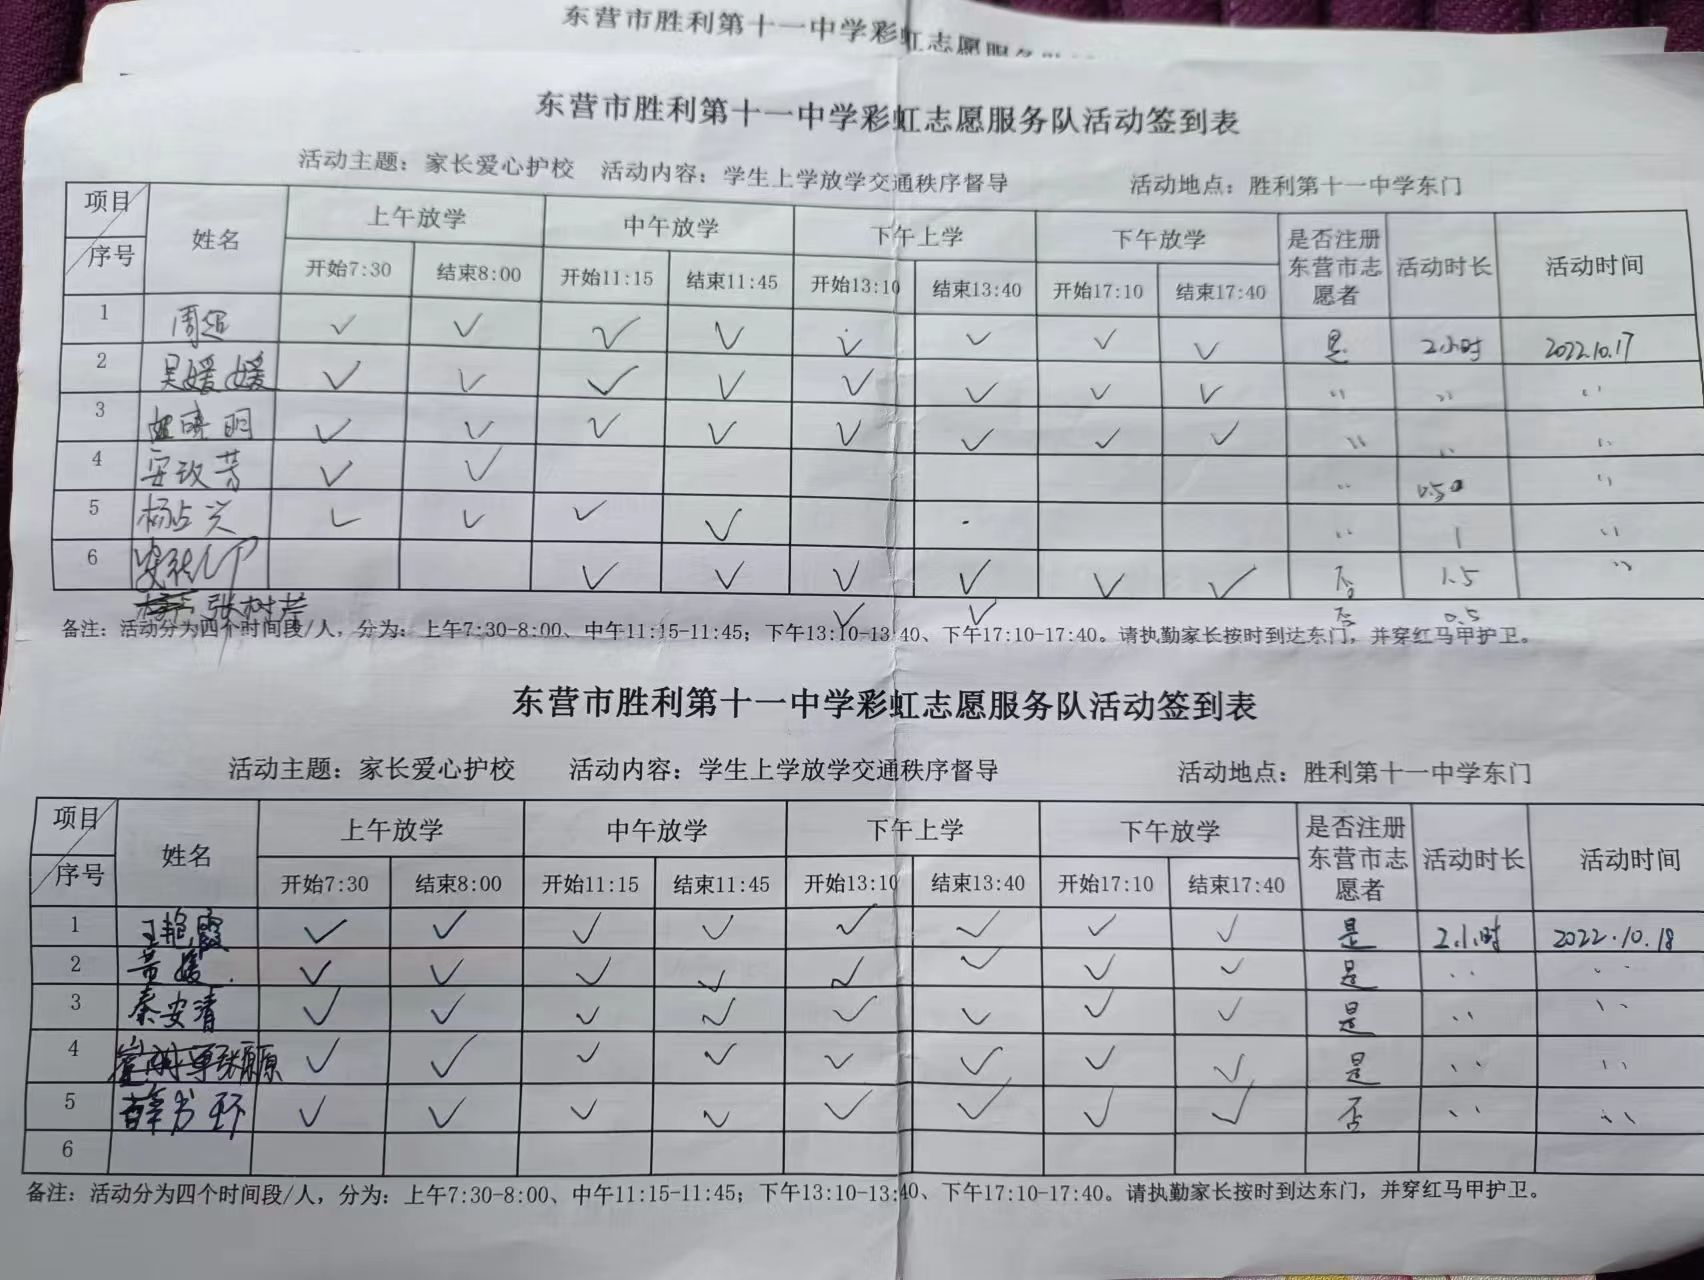 东营市胜利第十一中学彩虹志愿服务队
东营市胜利第十一中学彩虹志愿服务队活动签到表
活动主题：家长爱心护校 活动内容：学生上学放学交通秩序督导 活动地点：胜利第十一中学东门
项目 序号 姓名 上午放学 中午放学 下午上学 下午放学 是否注册东营市志愿者 活动时长 活动时间
开始7:30 结束8:00 开始11:15 结束11:45 开始13:10 结束13:40 开始17:10 结束17:40
1 周超 ✓ ✓ ✓ ✓ ✓ ✓ ✓ ✓ 是 2小时 2022.10.17
2 吴媛媛 ✓ ✓ ✓ ✓ ✓ ✓ ✓ ✓ 〃 〃 〃
3 晓明 ✓ ✓ ✓ ✓ ✓ ✓ ✓ ✓ 〃 〃 〃
4 安玫芳 ✓ ✓ 〃 0.5 〃
5 杨占兴 ✓ ✓ ✓ ✓ 〃 1 〃
6 ✓ ✓ ✓ ✓ ✓ ✓ 否 1.5 〃
张树芹 ✓ ✓ 否 0.5
备注：活动分为四个时间段/人，分为：上午7:30-8:00、中午11:15-11:45；下午13:10-13:40、下午17:10-17:40。请执勤家长按时到达东门，并穿红马甲护卫。
东营市胜利第十一中学彩虹志愿服务队活动签到表
活动主题：家长爱心护校 活动内容：学生上学放学交通秩序督导 活动地点：胜利第十一中学东门
项目 序号 姓名 上午放学 中午放学 下午上学 下午放学 是否注册东营市志愿者 活动时长 活动时间
开始7:30 结束8:00 开始11:15 结束11:45 开始13:10 结束13:40 开始17:10 结束17:40
1 王艳霞 ✓ ✓ ✓ ✓ ✓ ✓ ✓ ✓ 是 2小时 2022.10.18
2 黄媛 ✓ ✓ ✓ ✓ ✓ ✓ ✓ ✓ 是 〃 〃
3 秦安清 ✓ ✓ ✓ ✓ ✓ ✓ ✓ ✓ 是 〃 〃
4 张原原 ✓ ✓ ✓ ✓ ✓ ✓ ✓ ✓ 是 〃 〃
5 薛书环 ✓ ✓ ✓ ✓ ✓ ✓ ✓ ✓ 否 〃 〃
6
备注：活动分为四个时间段/人，分为：上午7:30-8:00、中午11:15-11:45；下午13:10-13:40、下午17:10-17:40。请执勤家长按时到达东门，并穿红马甲护卫。